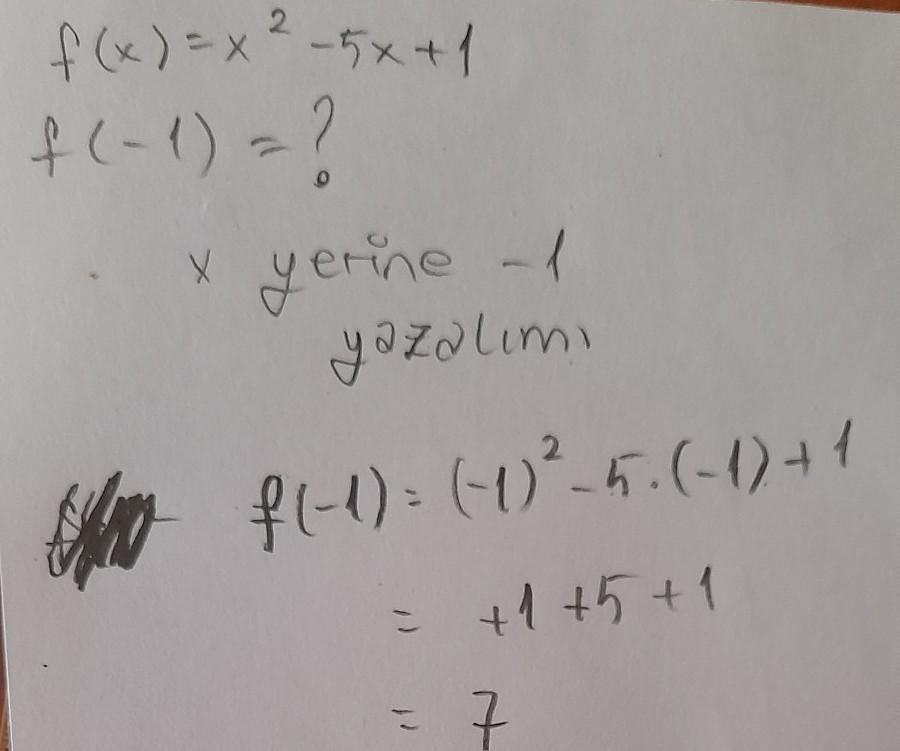 f(x)=x² -5x+1
f(-1) = ?
x yerine -1
yazalım
f(-1)= (-1)² -5.(-1)+1
= +1 +5 +1
= 7